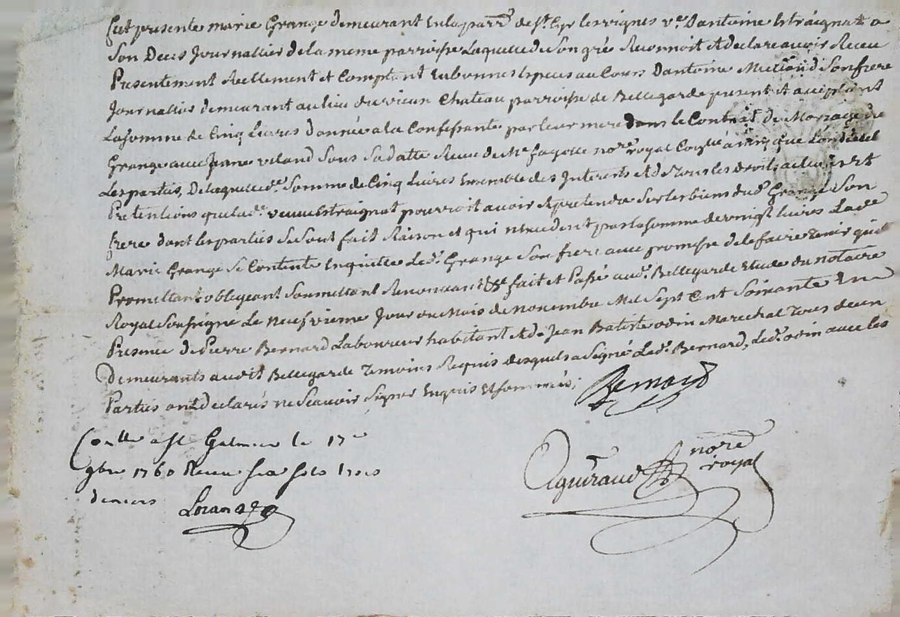 fut presente marie Grange demeurant en la parr.e de st Cyr les vignes v.e Dantoine Estraignat a
Son Deces Journallier de la meme parroisse Laquelle de Son gré Reconnoit et declare avoir Receu
Presentement Reellement et Comptant En bonnes Especes au Cours Dantoine Son frere
Journallier demeurant au lieu du vieux Chateau parroisse de Bellegarde present et acceptant
La somme de Cinq Livres donnée a la Confessante par leur mere dans le Contrat de Mariage du
Grange avec Jeanne Sous Sa datte Receu de Me fayolle nore royal ainsy que
Les parties, De laquelle d. Somme de Cinq Livres Ensemble des Interets et de tous les droits et
Pretentions que lad. veuve Estraignat pourroit avoir a pretendre Sur les biens dud. Grange Son
frere dont les parties Se Sont fait Raison et qui n'excedent pas la somme de vingt livres Lad.e
Marie Grange Se Contente En quitte Led. Grange Son frere avec promesse de le faire tenir quitte
Promettant obligeant Soumettant Renonceant &c fait et Passé aud. Bellegarde Etude du notaire
Royal Soussigné Le neufvieme Jour du Mois de novembre Mil Sept Cent Soixante En
Presence de Pierre Bernard Laboureur habitant et de Jean Batiste odin Marechal tous deux
Demeurants audit Bellegarde temoins Requis desquels a Signé Led. Bernard, Led. odin avec les
Parties ont declarés ne Scavoir Signer Enquis et sommés;
Bernard
Con.lle a st Galmier le 17e
9bre 1760 Receu six sols trois
deniers
Aguiraud nore royal